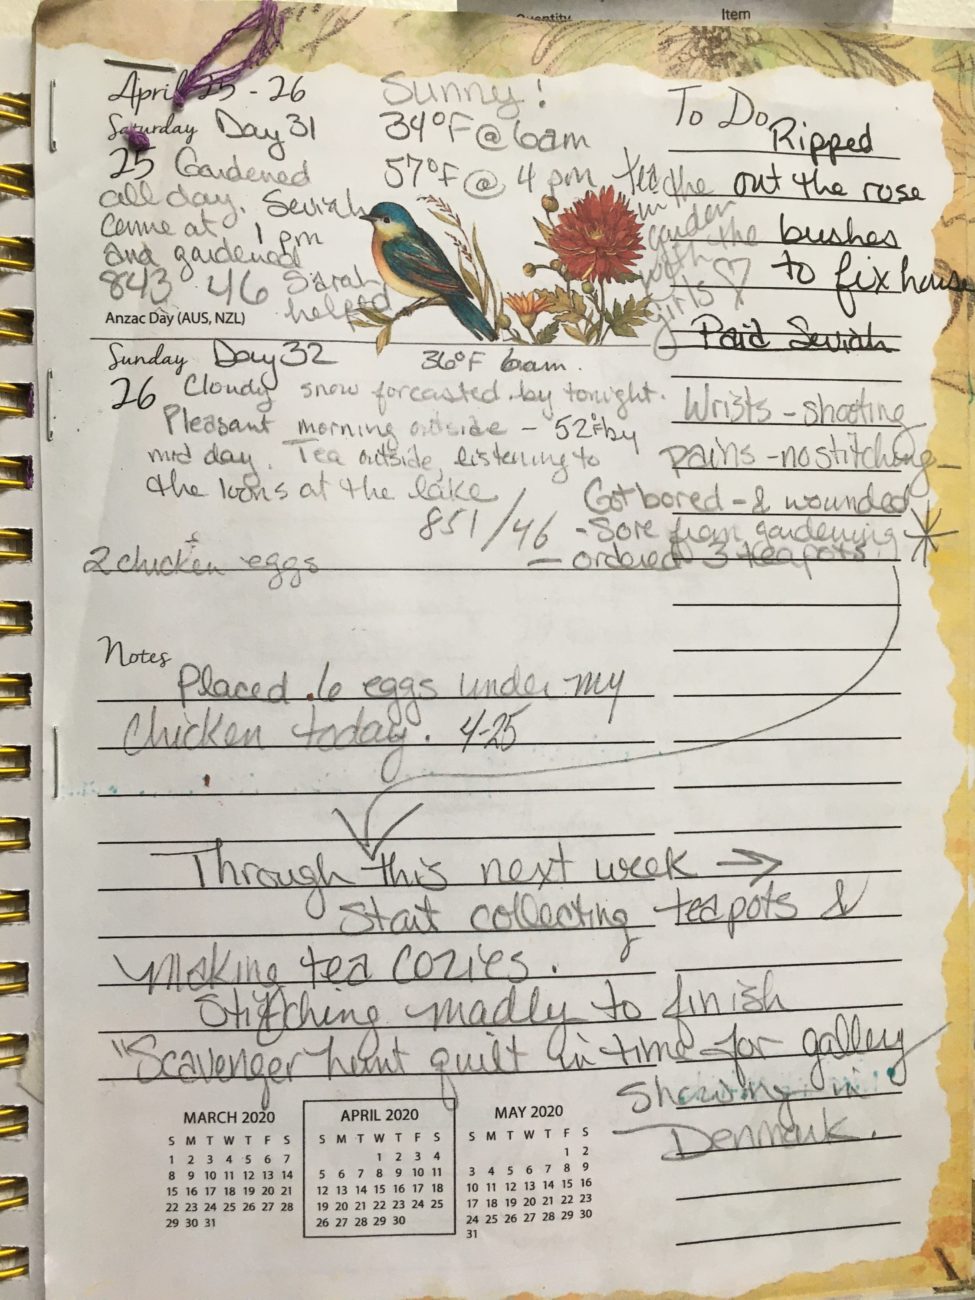 Quantity
Item
April 25 - 26
Sunny!
Saturday Day 31
34°F @ 6am
25 Gardened
57°F @ 4 pm
all day. Seviah
came at 1 pm
and gardened
843 46 Sarah
helped
Anzac Day (AUS, NZL)
Tea the
in the
garden
with the
girls ♡
To Do
Ripped
out the rose
bushes
to fix house
Paid Seviah
Sunday Day 32
36°F 6am.
26 Cloudy snow forcasted by tonight.
Pleasant morning outside - 52°F by
mid day. Tea outside, listening to
the loons at the lake
851/46
2 chicken eggs
Wrists - shooting
pains - no stitching
Got bored - & wounded
- Sore from gardening
- ordered 3 teapots.
Notes
Placed 6 eggs under my
chicken today. 4-25
Through this next week →
Start collecting teapots &
making tea cozies.
Stitching madly to finish
"Scavenger hunt quilt in time for galley
showing in
Denmark.
MARCH 2020
S M T W T F S
1 2 3 4 5 6 7
8 9 10 11 12 13 14
15 16 17 18 19 20 21
22 23 24 25 26 27 28
29 30 31
APRIL 2020
S M T W T F S
1 2 3 4
5 6 7 8 9 10 11
12 13 14 15 16 17 18
19 20 21 22 23 24 25
26 27 28 29 30
MAY 2020
S M T W T F S
1 2
3 4 5 6 7 8 9
10 11 12 13 14 15 16
17 18 19 20 21 22 23
24 25 26 27 28 29 30
31